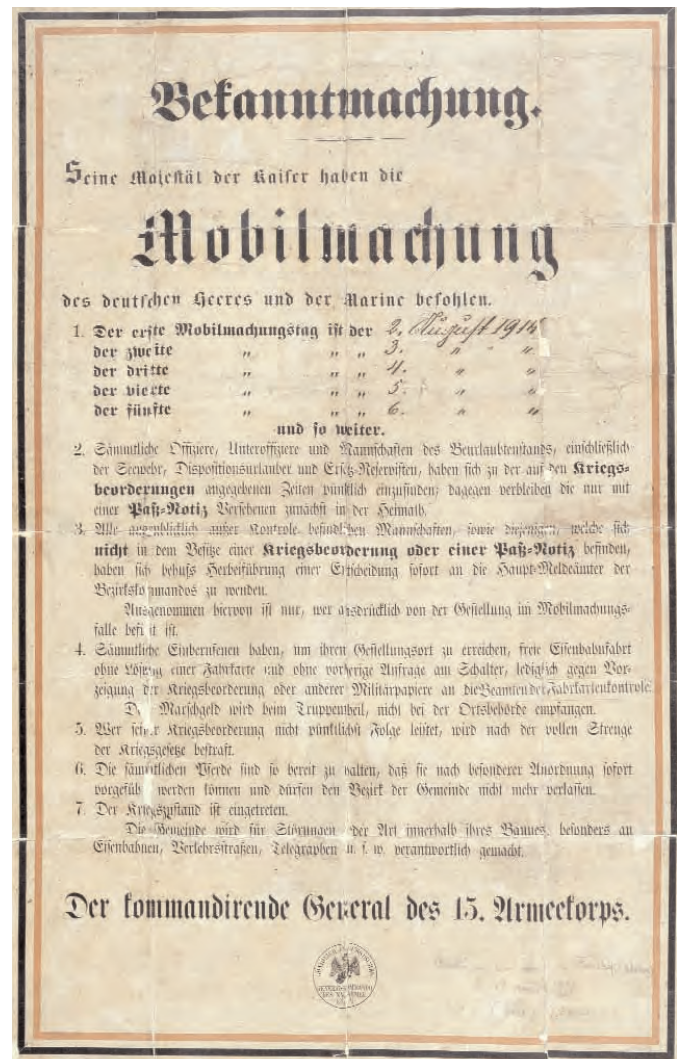 Bekanntmachung.
Seine Majestät der Kaiser haben die
Mobilmachung
des deutschen Heeres und der Marine befohlen.
1. Der erste Mobilmachungstag ist der 2. August 1914
der zweite „ „ „ 3. „ „
der dritte „ „ „ 4. „ „
der vierte „ „ „ 5. „ „
der fünfte „ „ „ 6. „ „
und so weiter.
2. Sämmtliche Offiziere, Unteroffiziere und Mannschaften des Beurlaubtenstands, einschließlich
der Seewehr, Dispositionsurlauber und Ersatz-Reservisten, haben sich zu der auf den Kriegs-
beorderungen angegebenen Zeiten pünktlich einzufinden; dagegen verbleiben die nur mit
einer Paß-Notiz Versehenen zunächst in der Heimath.
3. Alle augenblicklich außer Kontrole befindlichen Mannschaften, sowie diejenigen, welche sich
nicht in dem Besitze einer Kriegsbeorderung oder einer Paß-Notiz befinden,
haben sich behufs Herbeiführung einer Entscheidung sofort an die Haupt-Meldeämter der
Bezirkskommandos zu wenden.
Ausgenommen hiervon ist nur, wer ausdrücklich von der Gestellung im Mobilmachungs-
falle befreit ist.
4. Sämmtliche Einberufenen haben, um ihren Gestellungsort zu erreichen, freie Eisenbahnfahrt
ohne Lösung einer Fahrkarte und ohne vorherige Anfrage am Schalter, lediglich gegen Vor-
zeigung der Kriegsbeorderung oder anderer Militärpapiere an die Beamten der Fahrkartenkontrole.
Das Marschgeld wird beim Truppentheil, nicht bei der Ortsbehörde empfangen.
5. Wer seiner Kriegsbeorderung nicht pünktlichst Folge leistet, wird nach der vollen Strenge
der Kriegsgesetze bestraft.
6. Die sämmtlichen Pferde sind so bereit zu halten, daß sie nach besonderer Anordnung sofort
vorgeführt werden können und dürfen den Bezirk der Gemeinde nicht mehr verlassen.
7. Der Kriegszustand ist eingetreten.
Die Gemeinde wird für Störungen jeder Art innerhalb ihres Bannes, besonders an
Eisenbahnen, Verkehrsstraßen, Telegraphen u. s. w. verantwortlich gemacht.
Der kommandirende General des 15. Armeekorps.